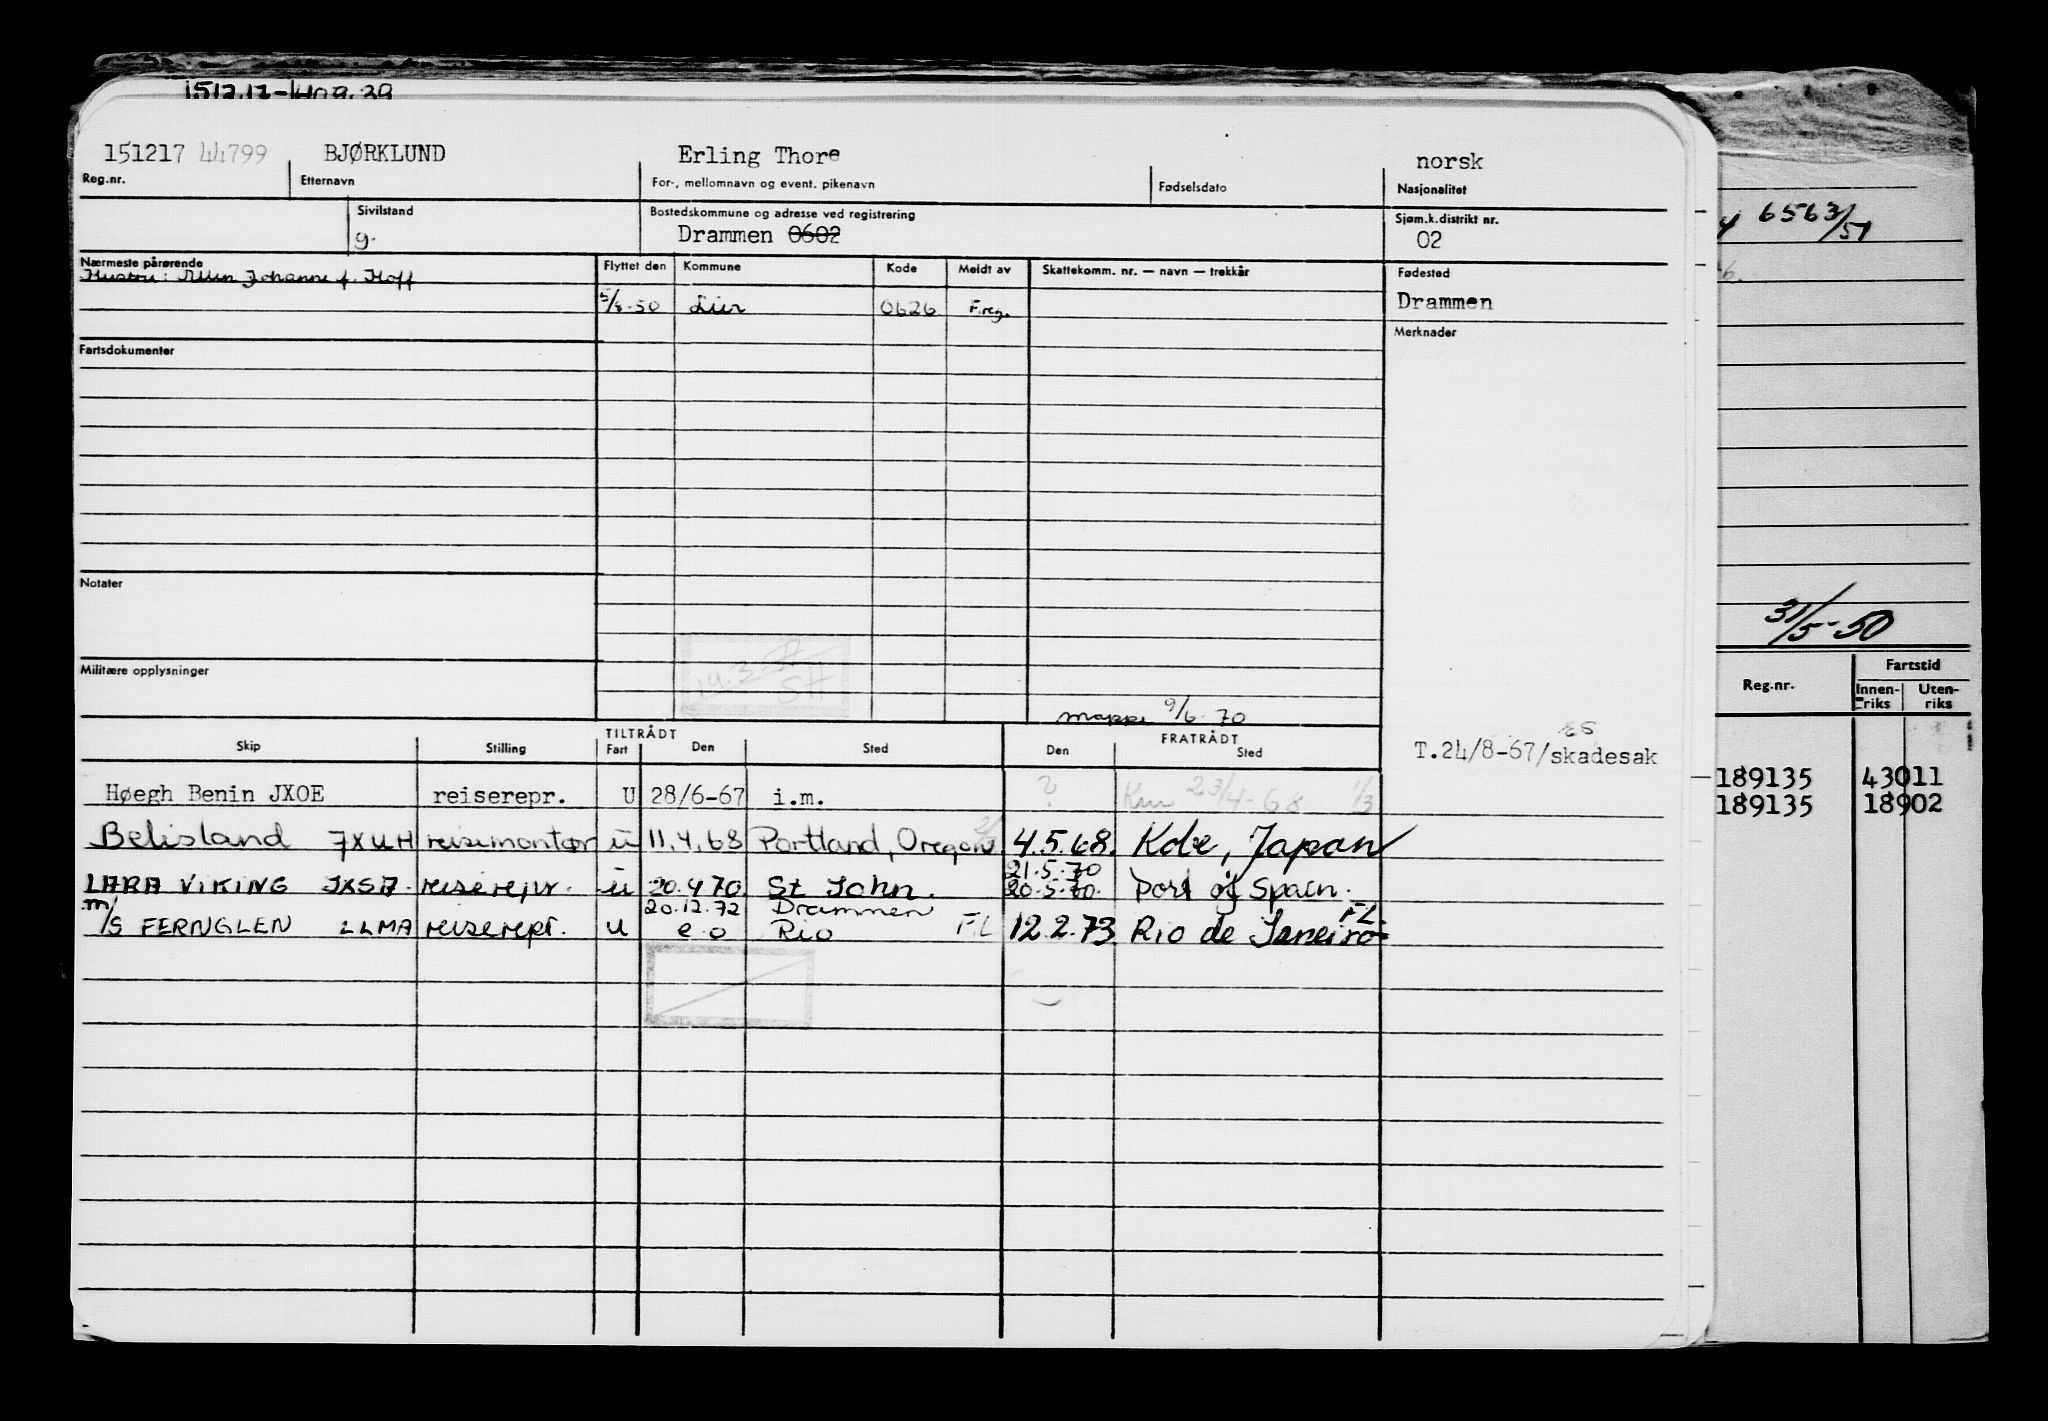 151217 44799 BJØRKLUND Erling Thore norsk
Reg.nr. Etternavn For-, mellomnavn og event. pikenavn Fødselsdato Nasjonalitet
Sivilstand Bostedskommune og adresse ved registrering Sjøm.k.distrikt nr.
g. Drammen 0602 02
Nærmeste pårørende Flyttet den Kommune Kode Meldt av Skattekomm. nr. — navn — trekkår Fødested
Johanne f. Hoff
5/8-50 Lier 0626 F.reg. Drammen
Merknader
Fartsdokumenter
Notater
Militære opplysninger
mappe 9/6-70
TILTRÅDT FRATRÅDT
Skip Stilling Fart Den Sted Den Sted
T.24/8-67/skadesak
Høegh Benin JXOE reiserepr. U 28/6-67 i.m. ? 23/4-68 1/3
Belisland JXUH reisemontør u 11.4.68 Portland, Oregon 4.5.68. Kobe, Japan
21.5.70
LARA VIKING JXSA reiserepr. u 20.4.70. St John. 20.5.70. Port of Spain.
20.12.72 Drammen
m/s FERNGLEN LLMA reiserepr. u e.o Rio FL 12.2.73 Rio de Janeiro FL
6563/51
31/5-50
Reg.nr. Fartstid
Innenriks Utenriks
189135 43011
189135 18902